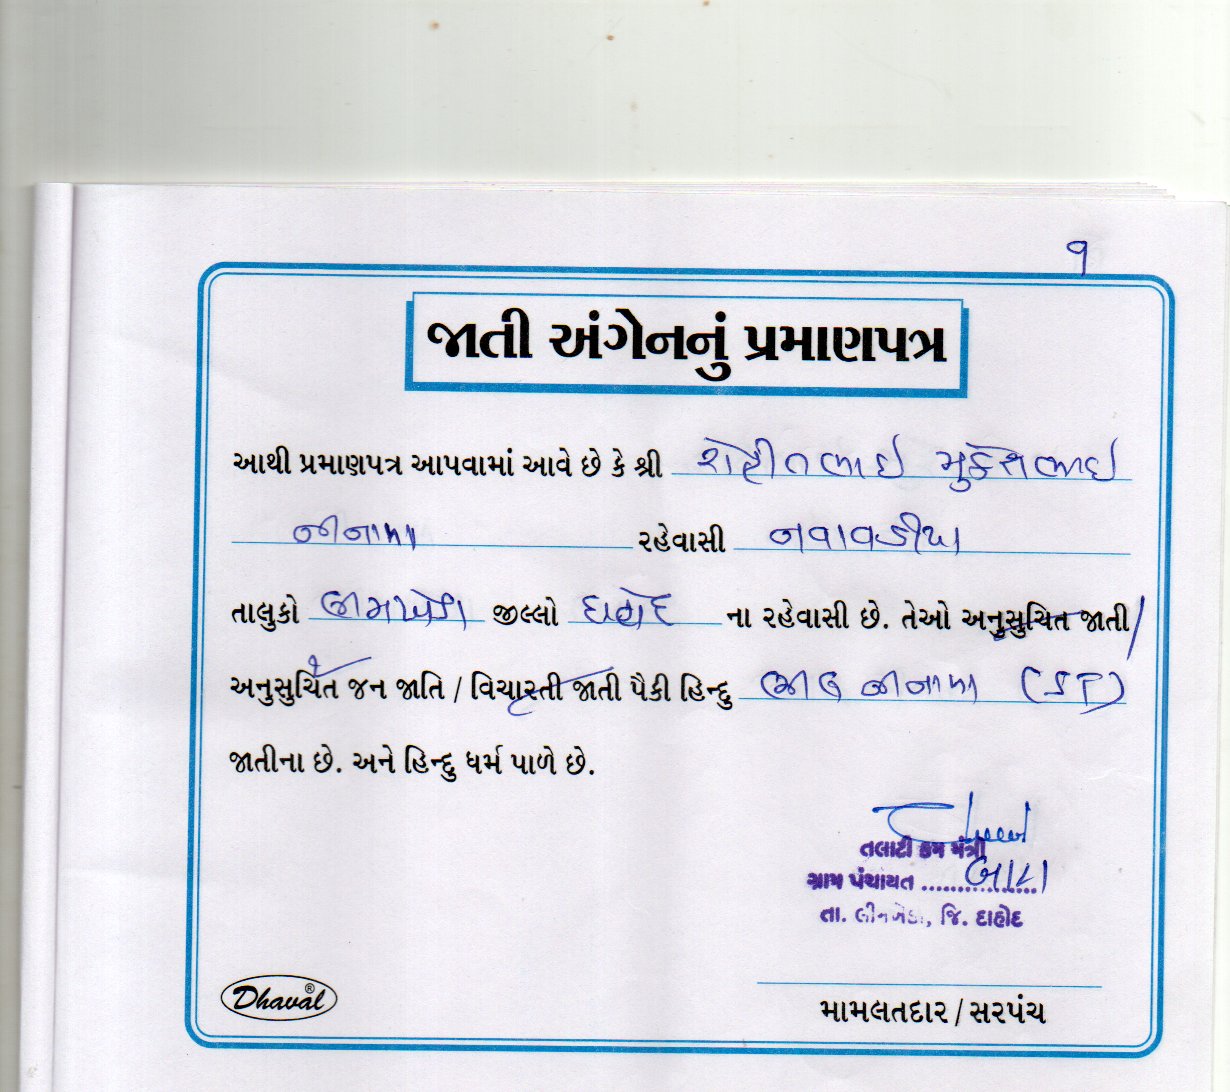 ૧
જાતી અંગેનનું પ્રમાણપત્ર
આથી પ્રમાણપત્ર આપવામાં આવે છે કે શ્રી રોહીતભાઇ મુકેશભાઇ
નીનામા રહેવાસી નવાવડીયા
તાલુકો લીમખેડા જીલ્લો દાહોદ ના રહેવાસી છે. તેઓ અનુસુચિત જાતી/
અનુસુચિત જન જાતિ / વિચારતી જાતી પૈકી હિન્દુ ભીલ નીનામા (ST)
જાતીના છે. અને હિન્દુ ધર્મ પાળે છે.
તલાટી કમ મંત્રી
ગ્રામ પંચાયત ................
તા. લીમખેડા, જિ. દાહોદ
Dhaval®
મામલતદાર / સરપંચ